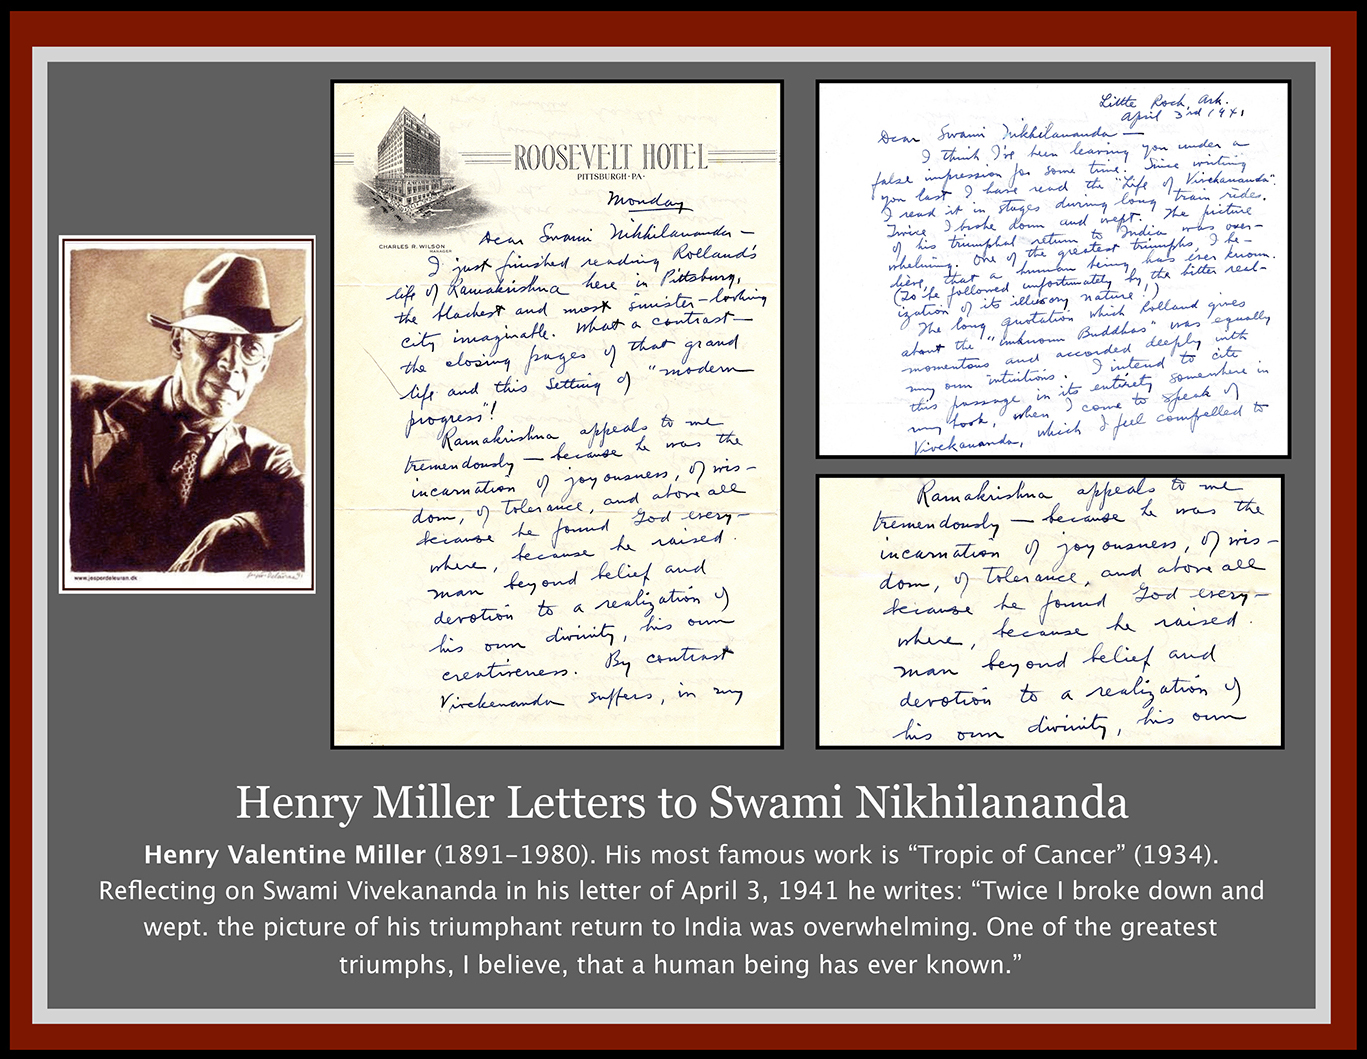 ROOSEVELT HOTEL
PITTSBURGH·PA·
CHARLES R. WILSON
MANAGER
Monday
Dear Swami Nikhilananda —
I just finished reading Rolland's
life of Ramakrishna here in Pittsburg,
the blackest and most sinister-looking
city imaginable. What a contrast —
the closing pages of that grand
life and this setting of "modern
progress"!
Ramakrishna appeals to me
tremendously — because he was the
incarnation of joyousness, of wis-
dom, of tolerance, and above all
because he found God every-
where, because he raised
man beyond belief and
devotion to a realization of
his own divinity, his own
creativeness. By contrast
Vivekananda suffers, in my
Little Rock, Ark.
April 3rd 1941
Dear Swami Nikhilananda —
I think I've been leaving you under a
false impression for some time. Since writing
you last I have read the "Life of Vivekananda".
I read it in stages during long train rides.
Twice I broke down and wept. The picture
of his triumphal return to India was over-
whelming. One of the greatest triumphs, I be-
lieve, that a human being has ever known.
(To be followed unfortunately by the bitter real-
ization of its illusory nature!)
The long quotation which Rolland gives
about the "unknown Buddhas" was equally
momentous and accorded deeply with
my own intuitions. I intend to cite
this passage in its entirety somewhere in
my book, when I come to speak of
Vivekananda, which I feel compelled to
Ramakrishna appeals to me
tremendously — because he was the
incarnation of joyousness, of wis-
dom, of tolerance, and above all
because he found God every-
where, because he raised
man beyond belief and
devotion to a realization of
his own divinity, his own
www.jesperdeleuran.dk
Henry Miller Letters to Swami Nikhilananda
Henry Valentine Miller (1891-1980). His most famous work is “Tropic of Cancer” (1934).
Reflecting on Swami Vivekananda in his letter of April 3, 1941 he writes: “Twice I broke down and
wept. the picture of his triumphant return to India was overwhelming. One of the greatest
triumphs, I believe, that a human being has ever known.”